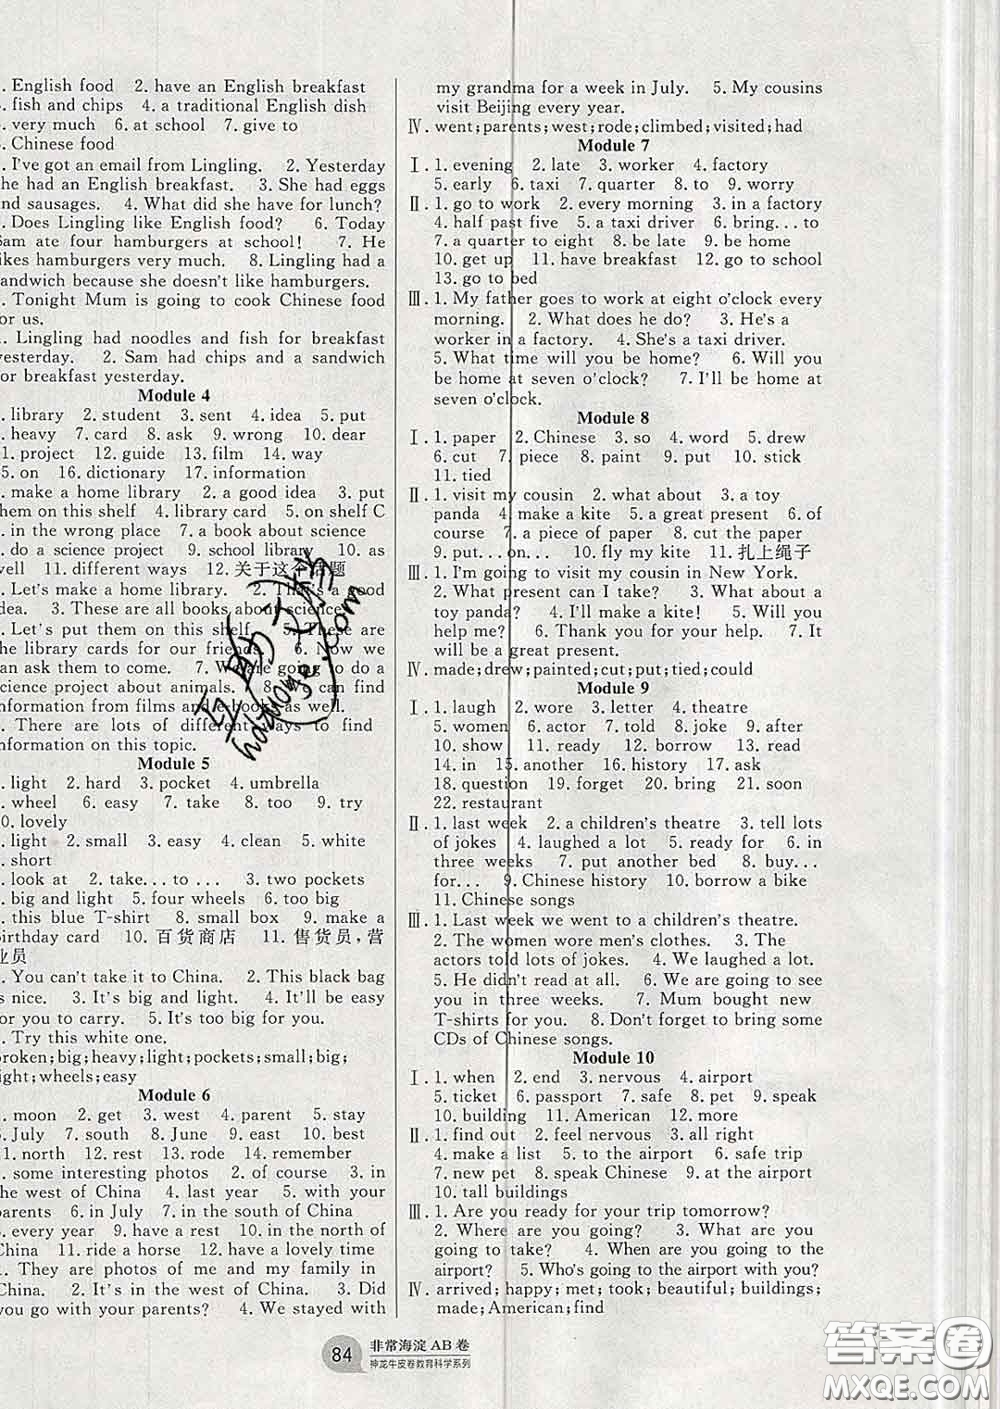 . English food 2. have an English breakfast
. fish and chips 4. a traditional English dish
. very much 6. at school 7. give to
. Chinese food
. I've got an email from Lingling. 2. Yesterday
she had an English breakfast. 3. She had eggs
and sausages. 4. What did she have for lunch?
. Does Lingling like English food? 6. Today
Sam ate four hamburgers at school! 7. He
likes hamburgers very much. 8. Lingling had a
sandwich because she doesn't like hamburgers.
. Tonight Mum is going to cook Chinese food
for us.
. Lingling had noodles and fish for breakfast
yesterday. 2. Sam had chips and a sandwich
for breakfast yesterday.
Module 4
. library 2. student 3. sent 4. idea 5. put
. heavy 7. card 8. ask 9. wrong 10. dear
1. project 12. guide 13. film 14. way
5. on 16. dictionary 17. information
. make a home library 2. a good idea 3. put
them on this shelf 4. library card 5. on shelf C
. in the wrong place 7. a book about science
. do a science project 9. school library 10. as
well 11. different ways 12. 关于这个话题
. Let's make a home library. 2. That's a good
idea. 3. These are all books about science.
. Let's put them on this shelf. 5. These are
the library cards for our friends. 6. Now we
can ask them to come. 7. We are going to do a
science project about animals. 8. We can find
information from films and e-books as well.
. There are lots of different ways to find
information on this topic.
Module 5
. light 2. hard 3. pocket 4. umbrella
. wheel 6. easy 7. take 8. too 9. try
0. lovely
. light 2. small 3. easy 4. clean 5. white
. short
. look at 2. take...to... 3. two pockets
. big and light 5. four wheels 6. too big
. this blue T-shirt 8. small box 9. make a
birthday card 10. 百货商店 11. 售货员,营
业员
. You can't take it to China. 2. This black bag
is nice. 3. It's big and light. 4. It'll be easy
for you to carry. 5. It's too big for you.
. Try this white one.
broken;big;heavy;light;pockets;small;big;
light;wheels;easy
Module 6
. moon 2. get 3. west 4. parent 5. stay
. July 7. south 8. June 9. east 10. best
1. north 12. rest 13. rode 14. remember
. some interesting photos 2. of course 3. in
the west of China 4. last year 5. with your
parents 6. in July 7. in the south of China
. every year 9. have a rest 10. in the north of
China 11. ride a horse 12. have a lovely time
. They are photos of me and my family in
China. 2. It's in the west of China. 3. Did
you go with your parents? 4. We stayed with
my grandma for a week in July. 5. My cousins
visit Beijing every year.
Ⅳ. went;parents;west;rode;climbed;visited;had
Module 7
Ⅰ. 1. evening 2. late 3. worker 4. factory
5. early 6. taxi 7. quarter 8. to 9. worry
Ⅱ. 1. go to work 2. every morning 3. in a factory
4. half past five 5. a taxi driver 6. bring...to
7. a quarter to eight 8. be late 9. be home
10. get up 11. have breakfast 12. go to school
13. go to bed
Ⅲ. 1. My father goes to work at eight o'clock every
morning. 2. What does he do? 3. He's a
worker in a factory. 4. She's a taxi driver.
5. What time will you be home? 6. Will you
be home at seven o'clock? 7. I'll be home at
seven o'clock.
Module 8
Ⅰ. 1. paper 2. Chinese 3. so 4. word 5. drew
6. cut 7. piece 8. paint 9. put 10. stick
11. tied
Ⅱ. 1. visit my cousin 2. what about 3. a toy
panda 4. make a kite 5. a great present 6. of
course 7. a piece of paper 8. cut the paper
9. put...on... 10. fly my kite 11. 扎上绳子
Ⅲ. 1. I'm going to visit my cousin in New York.
2. What present can I take? 3. What about a
toy panda? 4. I'll make a kite! 5. Will you
help me? 6. Thank you for your help. 7. It
will be a great present.
Ⅳ. made;drew;painted;cut;put;tied;could
Module 9
Ⅰ. 1. laugh 2. wore 3. letter 4. theatre
5. women 6. actor 7. told 8. joke 9. after
10. show 11. ready 12. borrow 13. read
14. in 15. another 16. history 17. ask
18. question 19. forget 20. bring 21. soon
22. restaurant
Ⅱ. 1. last week 2. a children's theatre 3. tell lots
of jokes 4. laughed a lot 5. ready for 6. in
three weeks 7. put another bed 8. buy...
for... 9. Chinese history 10. borrow a bike
11. Chinese songs
Ⅲ. 1. Last week we went to a children's theatre.
2. The women wore men's clothes. 3. The
actors told lots of jokes. 4. We laughed a lot.
5. He didn't read at all. 6. We are going to see
you in three weeks. 7. Mum bought new
T-shirts for you. 8. Don't forget to bring some
CDs of Chinese songs.
Module 10
Ⅰ. 1. when 2. end 3. nervous 4. airport
5. ticket 6. passport 7. safe 8. pet 9. speak
10. building 11. American 12. more
Ⅱ. 1. find out 2. feel nervous 3. all right
4. make a list 5. to the airport 6. safe trip
7. new pet 8. speak Chinese 9. at the airport
10. tall buildings
Ⅲ. 1. Are you ready for your trip tomorrow?
2. Where are you going? 3. What are you
going to take? 4. When are you going to the
airport? 5. Who's going to the airport with you?
Ⅳ. arrived;happy;met;took;beautiful;buildings;
made;American;find
84
非常海淀 AB 卷
神龙牛皮卷教育科学系列
答案卷
MXQE.COM